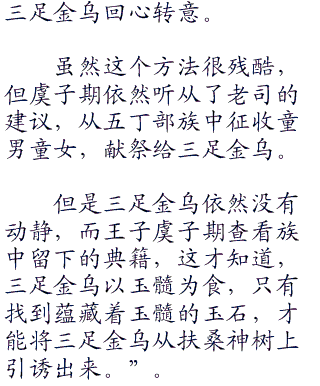 三足金乌回心转意。
虽然这个方法很残酷，
但虞子期依然听从了老司的
建议，从五丁部族中征收童
男童女，献祭给三足金乌。
但是三足金乌依然没有
动静，而王子虞子期查看族
中留下的典籍，这才知道，
三足金乌以玉髓为食，只有
找到蕴藏着玉髓的玉石，才
能将三足金乌从扶桑神树上
引诱出来。”。